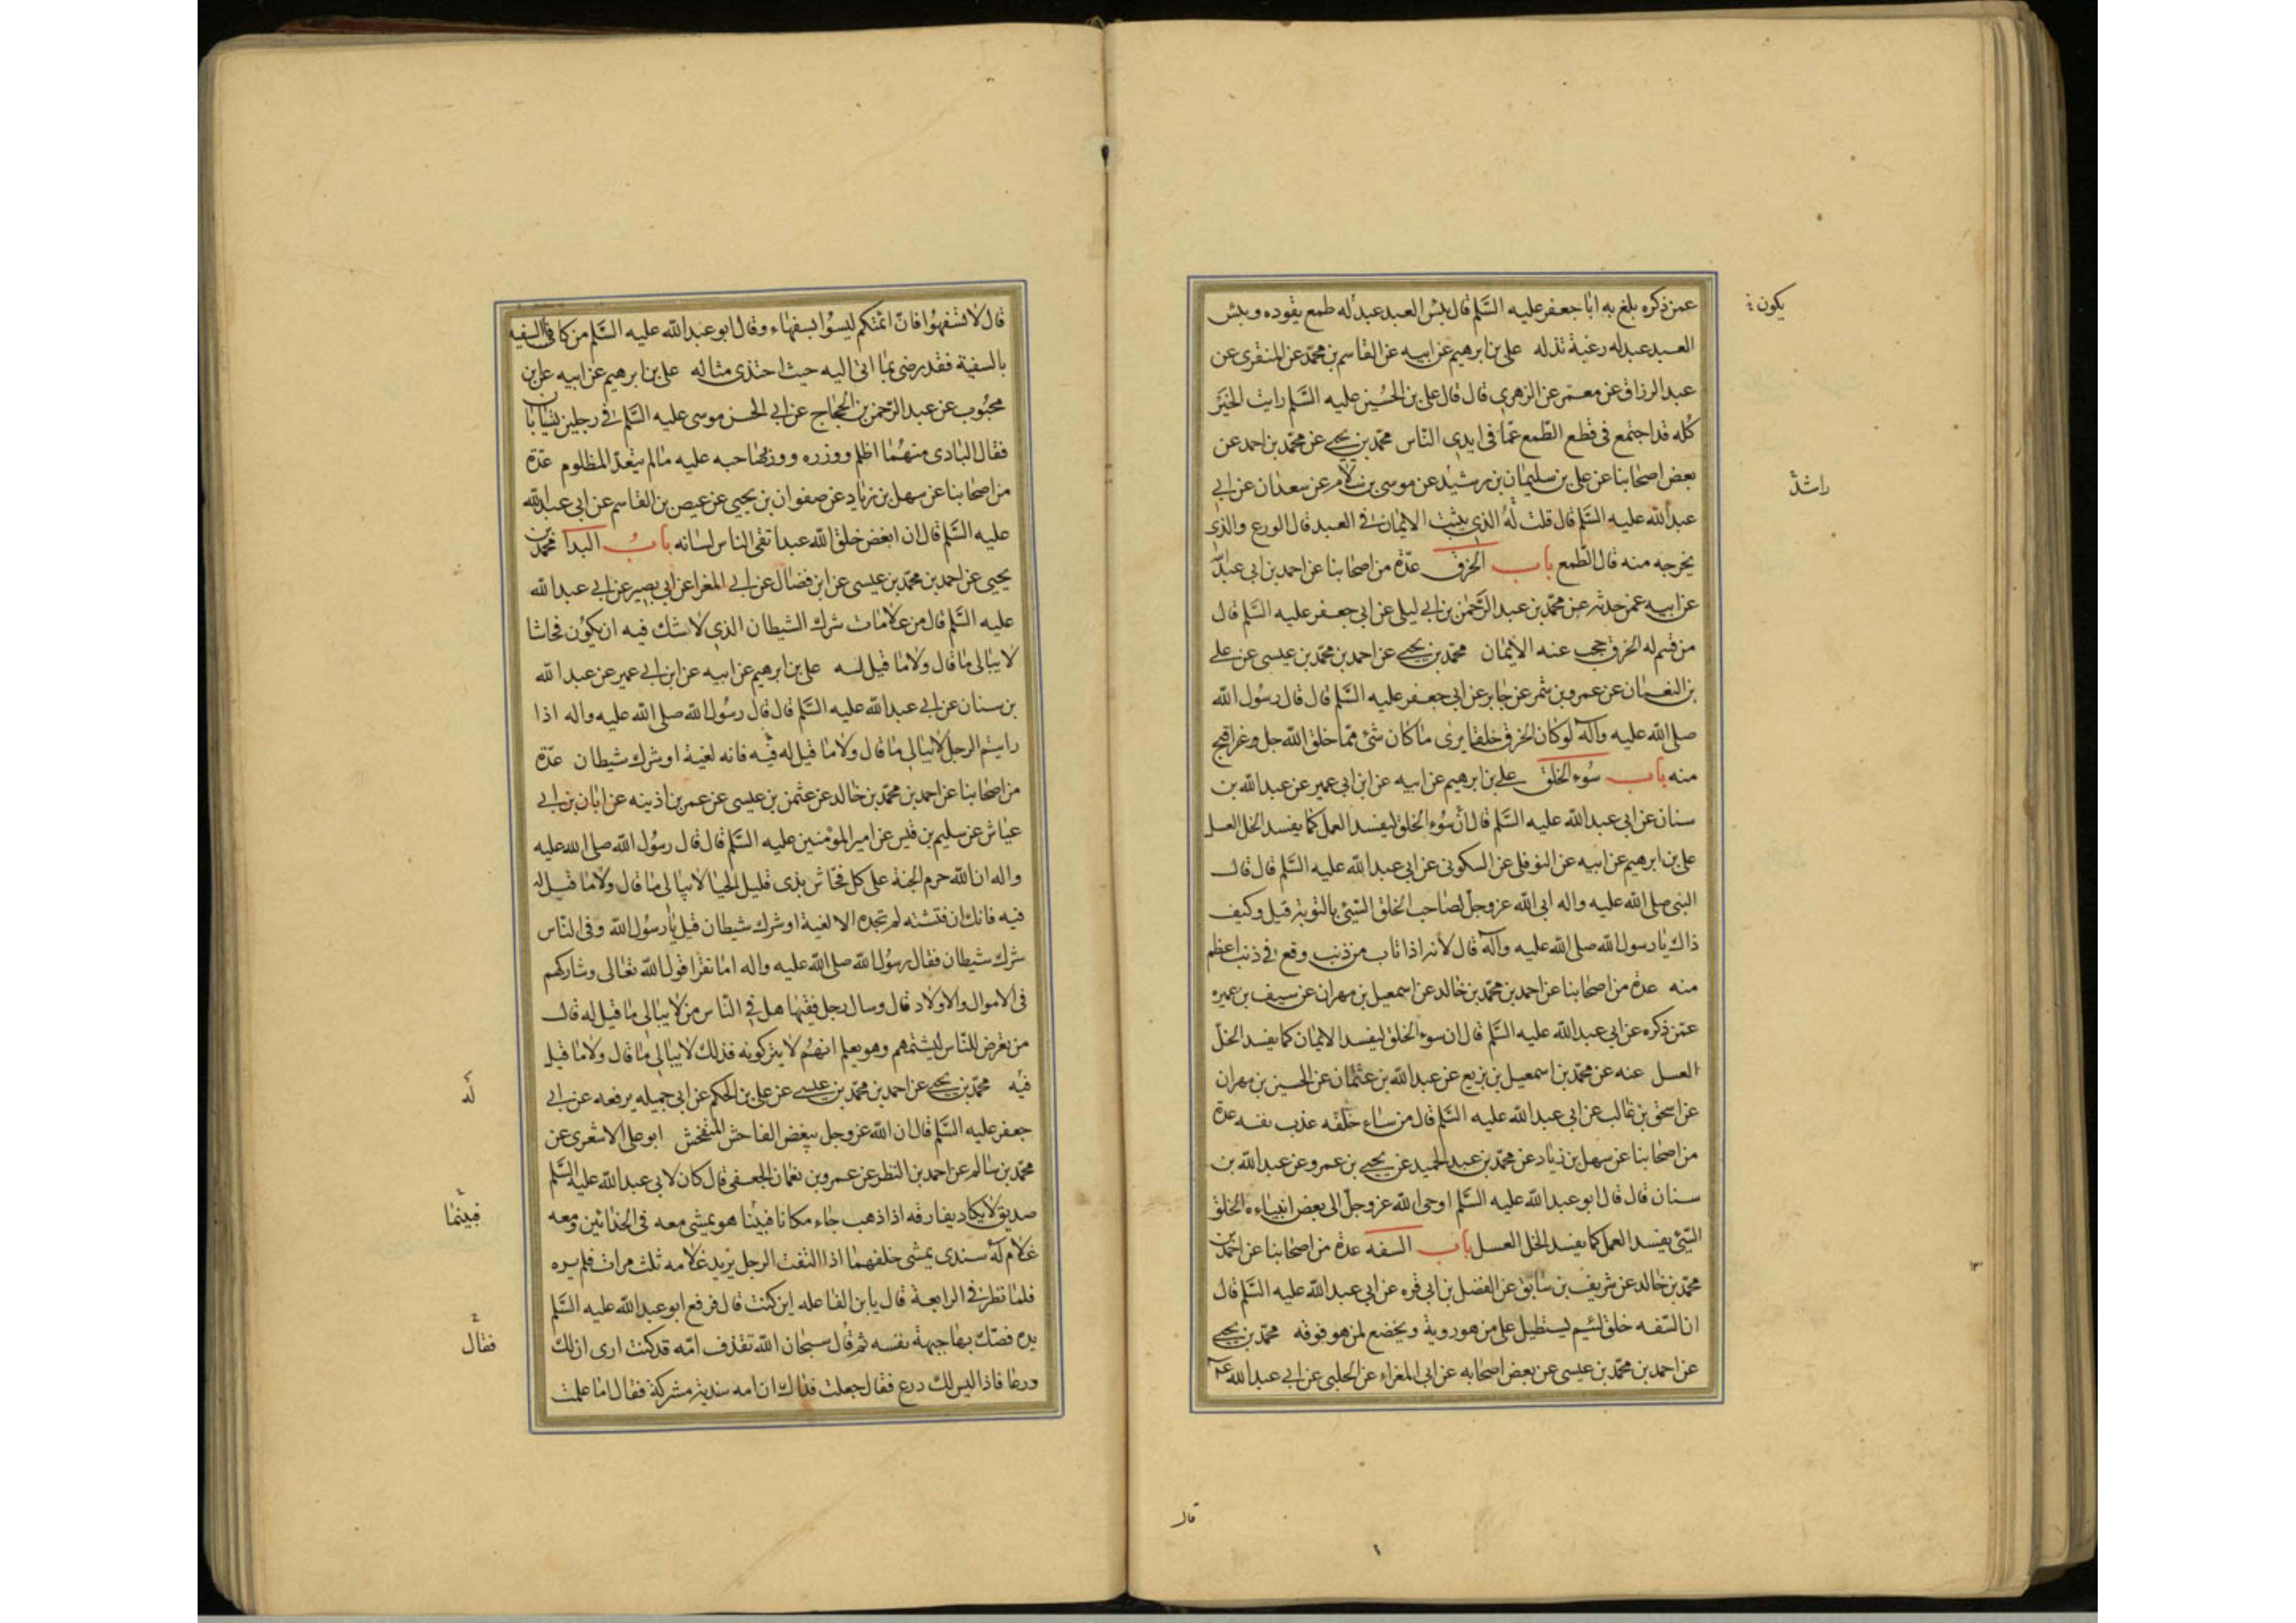 عمن ذكره بلغ به ابا جعفر عليه السَّلم قال بئس العبد عبد له طمع يقوده وبئس
العبد عبد له رغبة تذله علی بن ابرهيم عن ابيه عن القاسم بن محمّد عن المنقری عن
عبد الرزاق عن معتمر عن الزهری قال قال علی بن الحُسين عليه السَّلم رايت الخيَر
كُله قد اجتمع فی قطع الطّمع عمّا فی ايدی النّاس محمّد بن يحيے عن محمّد بن احمد عن
بعض اصحابنا عن علی بن سليمان بن رشيد عن موسی بن سلام عن سعدان عن ابی
عبد الله عليه السَّلم قال قلت لهُ الذی يثبت الايمان فی العبد قال الورع والذی
يخرجه منه قال الطّمع باب الخرق عدّة من اصحابنا عن احمد بن ابی عبد الله
عن ابيه عمن حدثه عن محمّد بن عبد الرَّحمٰن بن ابی ليلی عن ابی جعفر عليه السَّلم قال
من قسم له الخرق حجب عنه الايمان محمّد بن يحيے عن احمد بن محمّد بن عيسی عن علے
بن النعمان عن عمرو بن شمر عن جابر عن ابی جعفر عليه السَّلم قال قال رسُول الله
صلی الله عليه وآله لو كان الخرق خلقا يری ما كان شئ ممّا خلق الله جل وعز اقبح
منه باب سُوء الخلق علے بن ابرهيم عن ابيه عن ابن ابی عمير عن عبد الله بن
سنان عن ابی عبد الله عليه السَّلم قال انّ سُوء الخلق ليفسد العمل كما يفسد الخل العسل
علی بن ابرهيم عن ابيه عن النوفلی عن السكونی عن ابی عبد الله عليه السَّلم قال قال
النبی صلی الله عليه واله ابی الله عزوجلّ لصاحب الخلق السّيئ بالتوبة قيل وكيف
ذاك يا رسول الله صلی الله عليه وآله قال لانه اذا تاب من ذنب وقع فی ذنب اعظم
منه عدة من اصحابنا عن احمد بن محمّد بن خالد عن اسمعيل بن مهران عن سيف بن عميره
عمّن ذكره عن ابی عبد الله عليه السَّلم قال ان سوء الخلق ليفسد الايمان كما يفسد الخلّ
العسل عنه عن محمّد بن اسمعيل بن بزيع عن عبد الله بن عثمان عن الحسين بن مهران
عن اسحق بن غالب عن ابی عبد الله عليه السَّلم قال من ساء خلقه عذب نفسه عدة
من اصحابنا عن سهل بن زياد عن محمّد بن عبد الحميد عن يحيے بن عمرو عن عبد الله بن
سنان قال قال ابو عبد الله عليه السَّلم اوحی الله عزوجلّ الی بعض انبياءه الخلق
السّيئ يفسد العمل كما يفسد الخل العسل باب السفه عدة من اصحابنا عن احمد بن
محمّد بن خالد عن شريف بن سابق عن الفضل بن ابی قره عن ابی عبد الله عليه السَّلم قال
ان السّفه خلق لئيم يستطيل علی من هو دونه ويخضع لمن هو فوقه محمّد بن يحيے
عن احمد بن محمّد بن عيسی عن بعض اصحابه عن ابی المغراء عن الحلبی عن ابی عبد الله
يكون
راشد
قال
قال لا تسفهُوا فانّ ائمّتكم ليسُوا بسفهاء وقال ابو عبد الله عليه السَّلم من كافی السفيه
بالسفية فقد رضی بما اتی اليه حيث احتذی مثاله علی بن ابرهيم عن ابيه عن ابن
محبُوب عن عبد الرّحمن بن الحجّاج عن ابی الحسن موسی عليه السَّلم فی رجلين يتسابان
فقال البادی منهُما اظلم ووزره ووزر صاحبه عليه ما لم يتعدّ المظلوم عدّة
من اصحابنا عن سهل بن زياد عن صفوان بن يحيی عن عيص بن القاسم عن ابی عبد الله
عليه السَّلم قال ان ابغض خلق الله عبد اتقی الناس لسانه بابُ البدا محمّد بن
يحيی عن احمد بن محمّد بن عيسی عن ابن فضّال عن ابی المغرا عن ابی بصير عن ابی عبد الله
عليه السَّلم قال من علامات شرك الشيطان الذی لا شك فيه ان يكوُن فحاشا
لا يبالی ما قال ولا ما قيل له علی بن ابرهيم عن ابيه عن ابن ابی عمير عن عبد الله
بن سنان عن ابی عبد الله عليه السَّلم قال قال رسُول الله صلی الله عليه واله اذا
رايتم الرجل لا يبالی ما قال ولا ما قيل له فيه فانه لغية او شرك شيطان عدّة
من اصحابنا عن احمد بن محمّد بن خالد عن عثمن بن عيسی عن عمر بن اذينه عن ابان بن ابی
عياش عن سليم بن قيس عن امير المؤمنين عليه السَّلم قال قال رسُول الله صلی الله عليه
واله ان الله حرم الجنة علی كل فحّاش بذی قليل الحيا لا يبالی ما قال ولا ما قيل له
فيه فانك ان فتشته لم تجده الا لغية او شرك شيطان قيل يا رسُول الله وفی النّاس
شرك شيطان فقال رسُول الله صلی الله عليه واله اما تقرا قول الله تعالی وشاركهم
فی الاموال والاولاد قال وسال رجل فقيها هل فی النّاس من لا يبالی ما قيل له قال
من تعرض للنّاس ليشتمهم وهو يعلم انهُم لا يتركونه فذلك لا يبالی ما قال ولا ما قيل
فيه محمّد بن يحيے عن احمد بن محمّد بن عيسے عن علی بن الحكم عن ابی جميله يرفعه عن ابی
جعفر عليه السَّلم قال ان الله عزوجل يبغض الفاحش المتفحش ابو علی الاشعری عن
محمّد بن سالم عن احمد بن النظر عن عمرو بن نعمان الجعفی قال كان لابی عبد الله عليه السَّلم
صديق لا يكاد يفارقه اذا ذهب جاء مكانا فبينا هو يمشی معه فی الحذائين ومعه
غلام لهُ سندی يمشی خلفهما اذا التفت الرجل يريد غلامه ثلث مرات فلم يره
فلما نظر فی الرابعة قال يا بن الفاعله اين كنت قال فرفع ابو عبد الله عليه السَّلم
يده فصّك بها جبهة نفسه ثم قال سبحان الله تقذف امّه قد كنت اری ان لك
ورعا فاذا ليس لك ورع فقال جعلت فداك ان امه سندية مشركة فقال اما علمت
له
فبينما
فقال